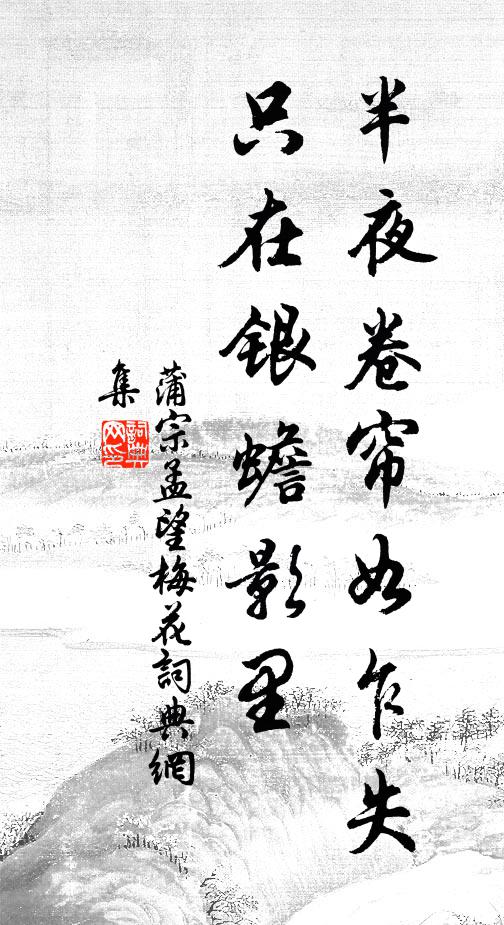 半夜卷帘如乍失
只在銀蟾影里
蒲宗孟望梅花詞典網
集
詞典網